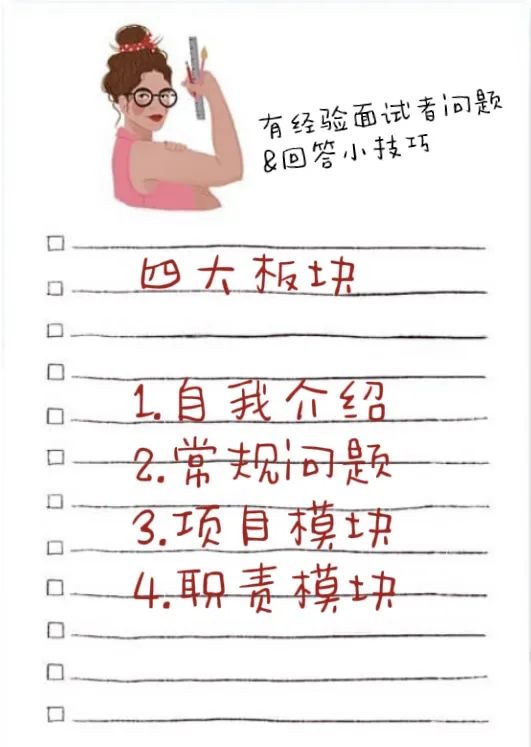 有经验面试者问题
&回答小技巧
四大板块
1.自我介绍
2.常规问题
3.项目模块
4.职责模块